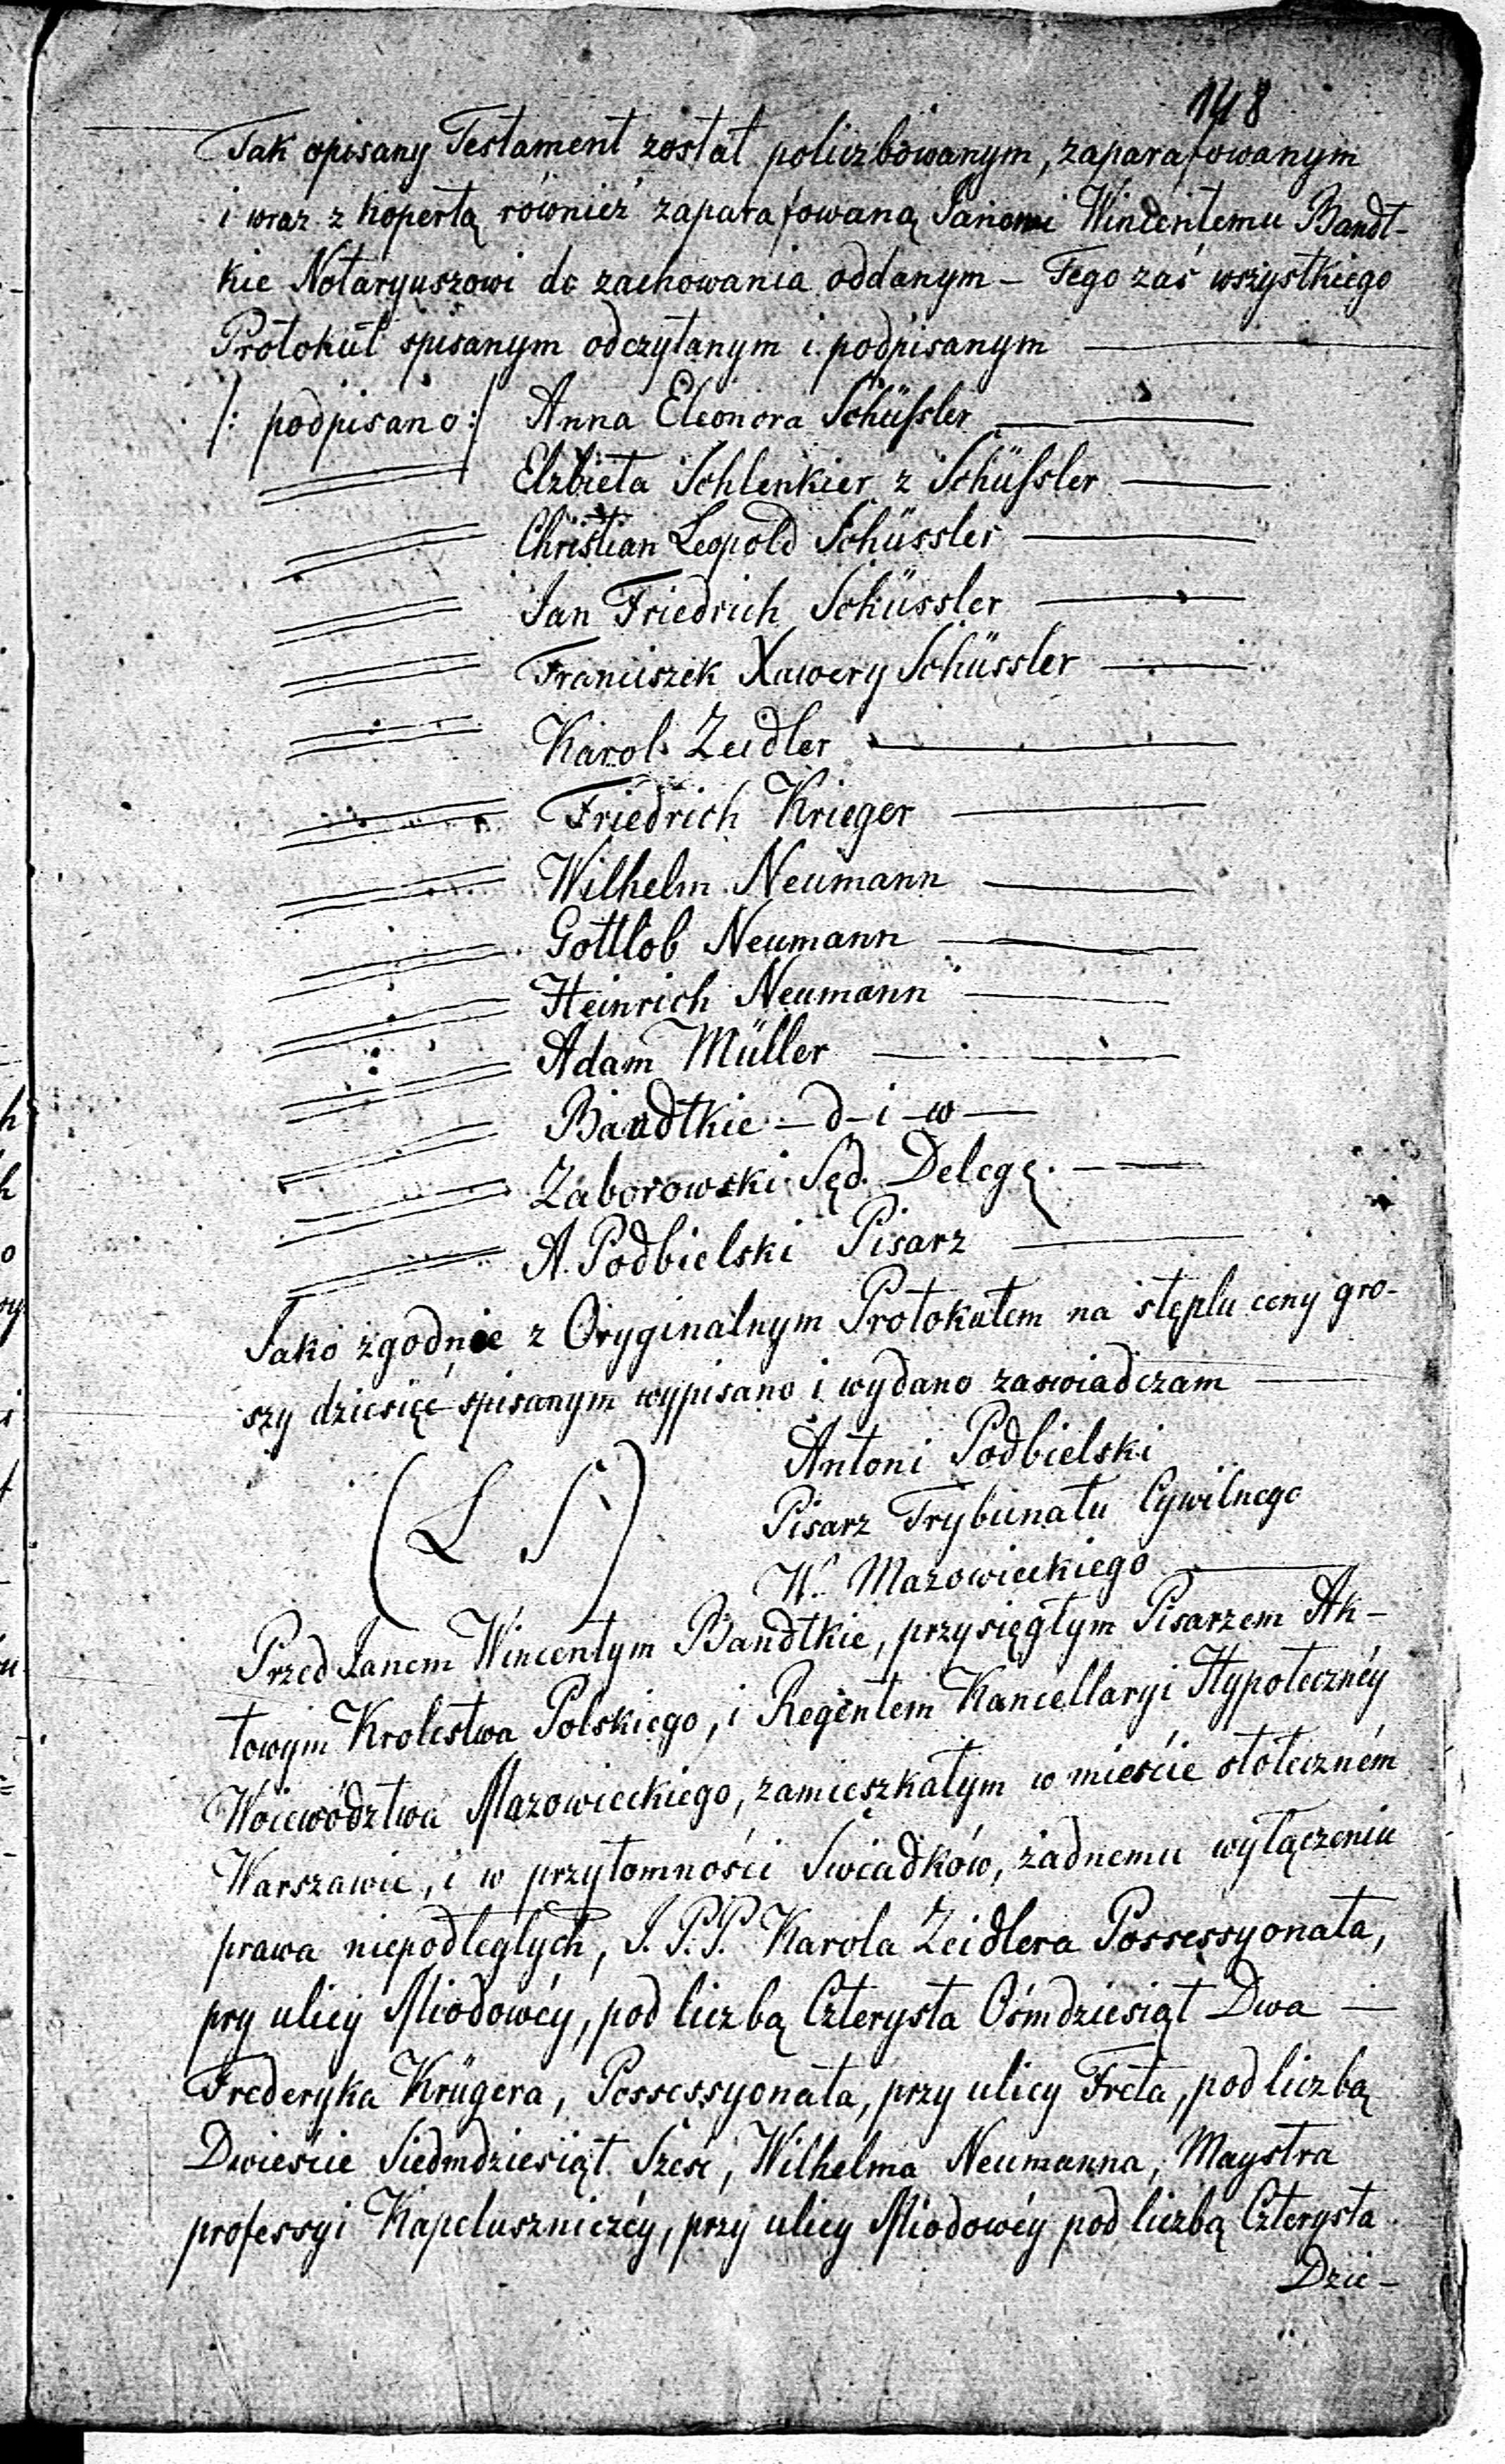 148
Tak opisany Testament został policzbowanym, zaparafowanym
i wraz z kopertą również zaparafowaną Janowi Wincentemu Bandt-
kie Notaryuszowi do zachowania oddanym – Tego zaś wszystkiego
Protokuł spisanym odczytanym i podpisanym —
/: podpisano :/ Anna Eleonora Schüſsler —
Elzbieta Schlenkier z Schüſsler —
Christian Leopold Schüssler —
Jan Friedrich Schüssler —
Franciszek Xawery Schüssler —
Karol Zeidler —
Friedrich Krieger —
Wilhelm Neumann —
Gottlob Neumann —
Heinrich Neumann —
Adam Müller —
Bandtkie – d – i – w —
Zaborowski Sęd. Delegę. —
A. Podbielski Pisarz —
Jako zgodnie z Oryginalnym Protokułem na stęplu ceny gro-
szy dziesięć spisanym wypisano i wydano zaswiadczam —
Antoni Podbielski
(L S) Pisarz Trybunału Cywilnego
W. Mazowieckiego —
Przed Janem Wincentym Bandtkie, przysięgłym Pisarzem Ak-
towym Krolestwa Polskiego, i Regentem Kancellaryi Hypotecznéy
Woiewództwa Mazowieckiego, zamieszkałym w mieście stołeczném
Warszawie, i w przytomności Swiadków, żadnemu wyłączeniu
prawa niepodległych, J.P.P. Karola Zeidlera Possessyonata,
pry ulicy Miodowéy, pod liczbą Czterysta Ośmdziesiąt Dwa —
Frederyka Krügera, Possessyonata, przy ulicy Freta, pod liczbą
Dwieście Siedmdziesiąt Sześć, Wilhelma Neumanna, Maystra
professyi Kapeluszniczéy, przy ulicy Miodowéy pod liczbą Czterysta
Dzie-